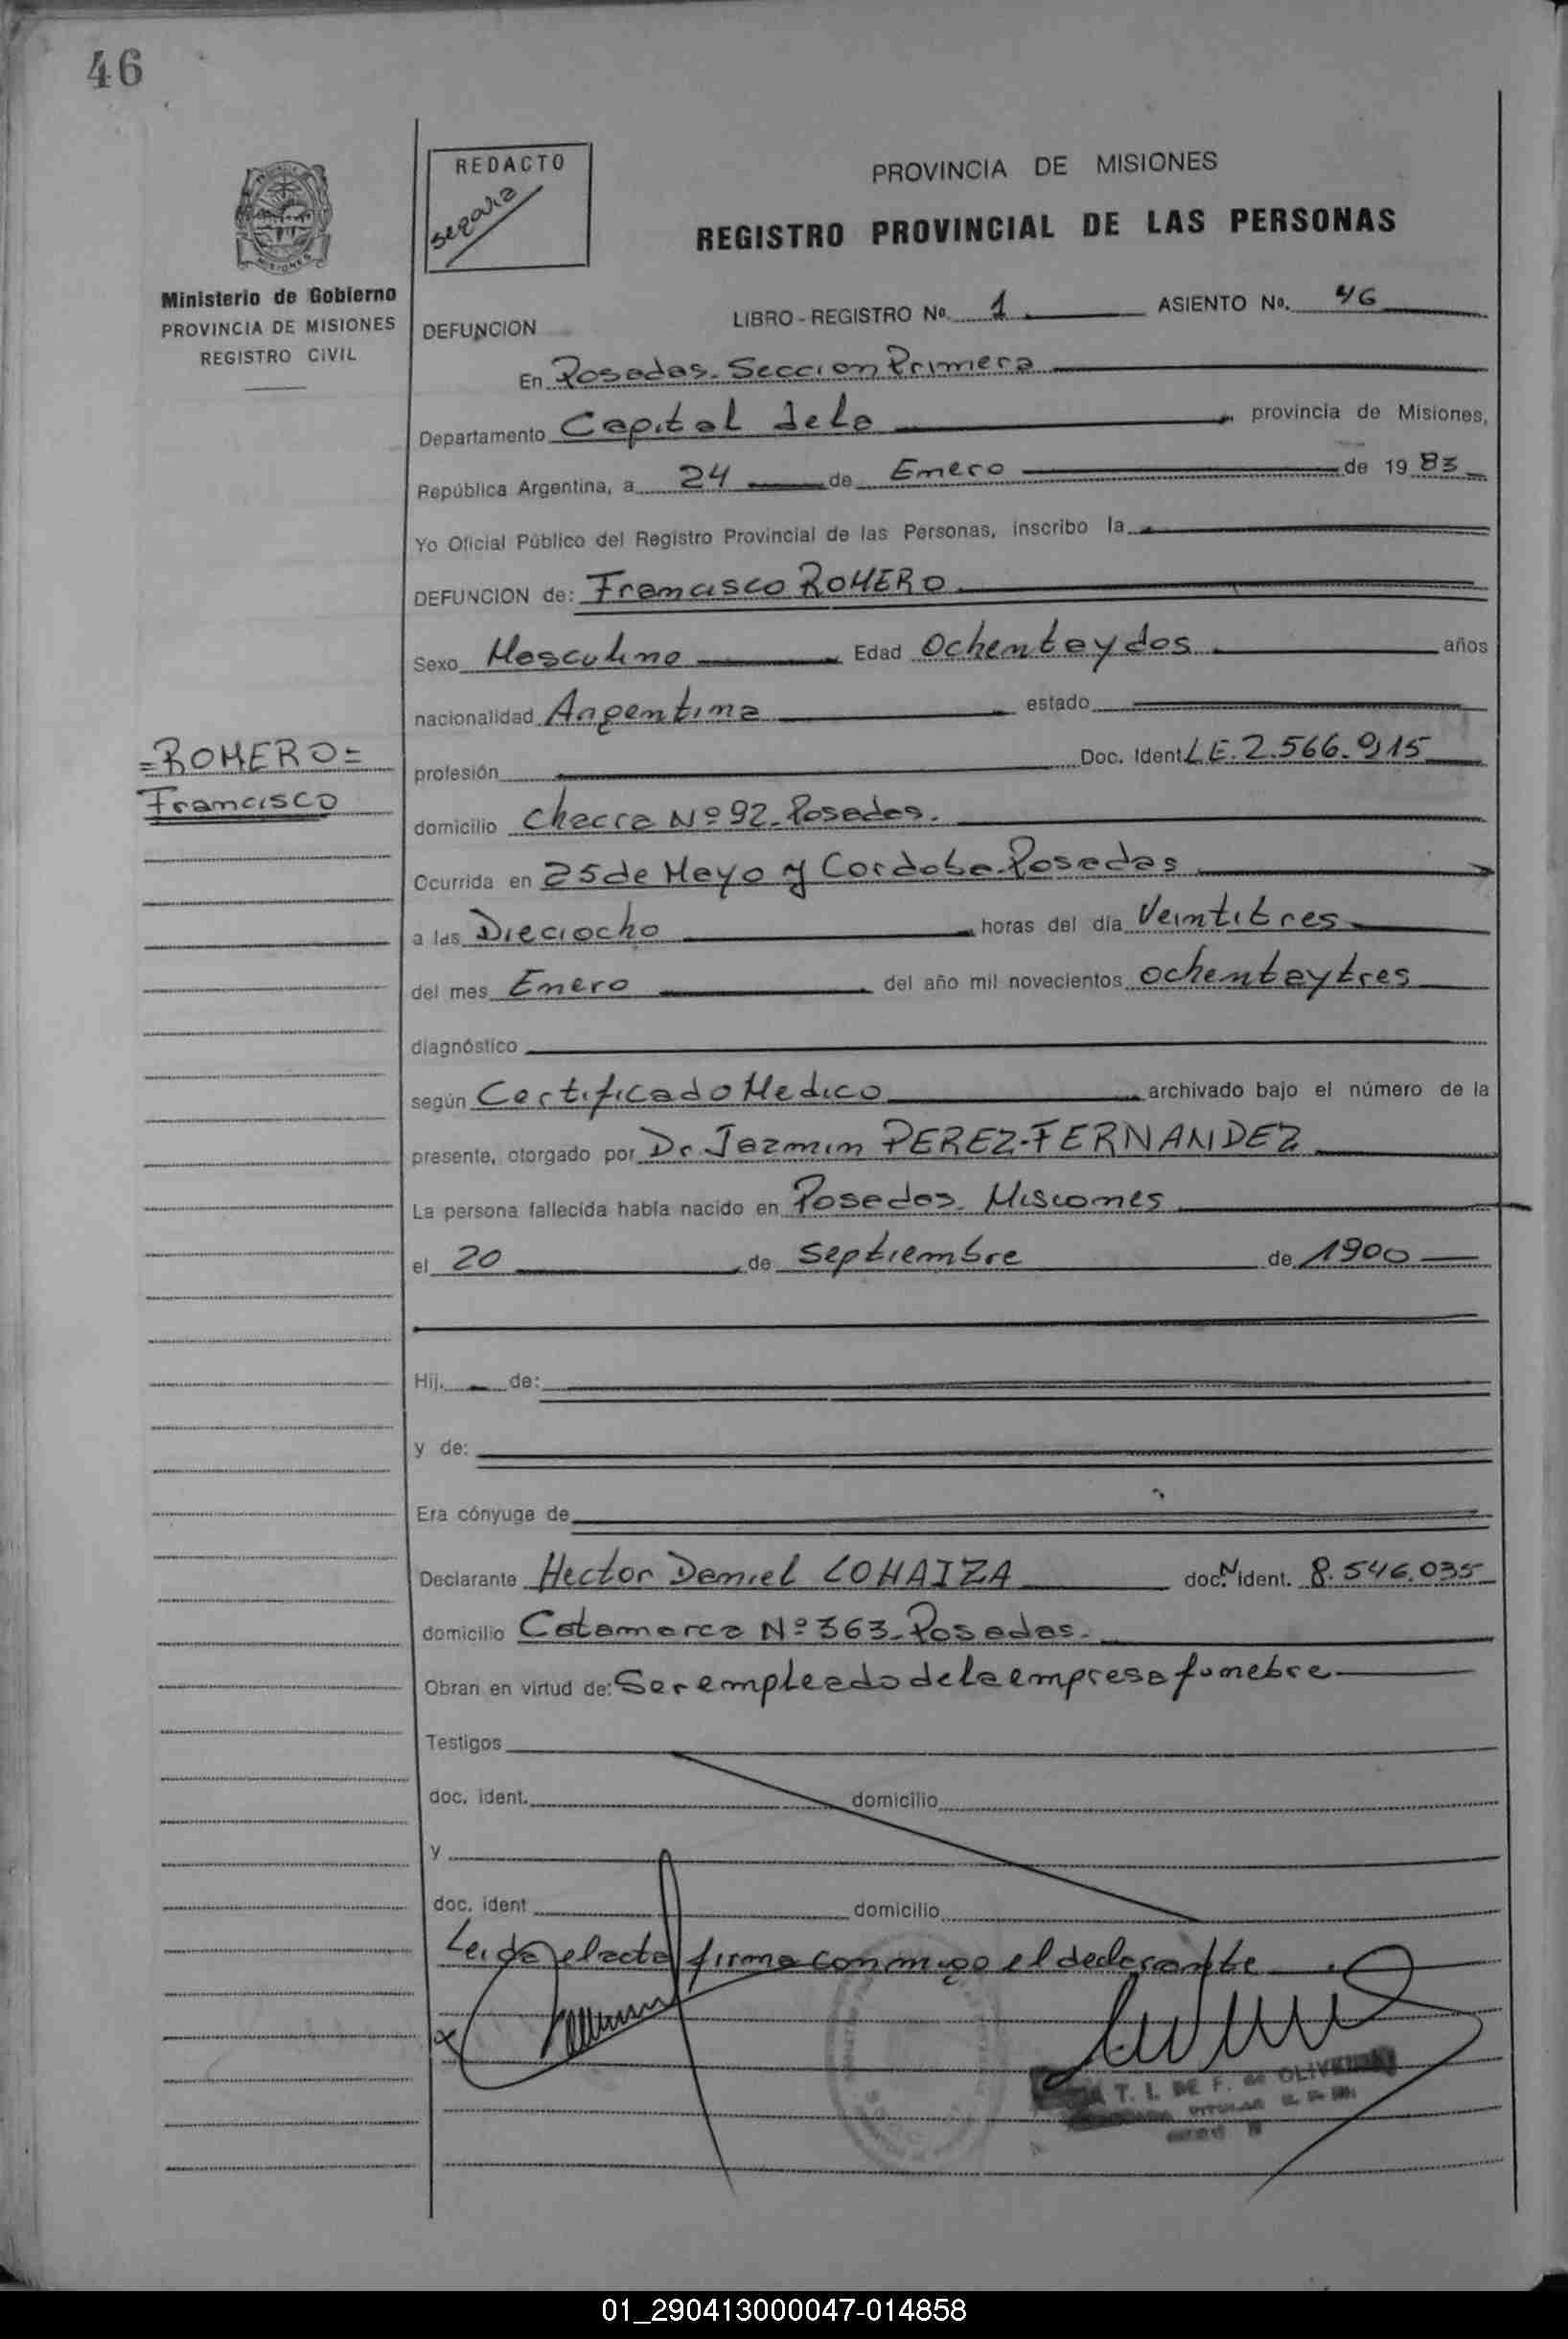 46
REDACTO
Segovia
MISIONES
Ministerio de Gobierno
PROVINCIA DE MISIONES
REGISTRO CIVIL
PROVINCIA DE MISIONES
REGISTRO PROVINCIAL DE LAS PERSONAS
DEFUNCION LIBRO - REGISTRO Nº. 1 ASIENTO Nº. 46
En Posadas. Seccion Primera
Departamento Capital de la provincia de Misiones,
República Argentina, a 24 de Enero de 1983
Yo Oficial Público del Registro Provincial de las Personas, inscribo la
DEFUNCION de: Francisco ROMERO
Sexo Masculino Edad Ochenta y dos años
nacionalidad Argentina estado
=ROMERO=
Francisco
profesión Doc. Ident. L.E. 2.566.915
domicilio Chacra Nº 92. Posadas.
Ocurrida en 25 de Mayo y Cordoba. Posadas
a las Dieciocho horas del día Veintitres
del mes Enero del año mil novecientos ochenta y tres
diagnóstico
según Certificado Medico archivado bajo el número de la
presente, otorgado por Dr. Jazmin PEREZ-FERNANDEZ
La persona fallecida había nacido en Posadas. Misiones
el 20 de septiembre de 1900
Hij. de:
y de:
Era cónyuge de
Declarante Hector Daniel LOHAIZA doc. N ident. 8.546.035
domicilio Catamarca Nº 363. Posadas.
Obran en virtud de: Ser empleado de la empresa funebre
Testigos
doc. ident. domicilio
y
doc. ident domicilio
Leida el acta firma conmigo el declarante
T. I. DE F. de OLIVEIRA
01_290413000047-014858